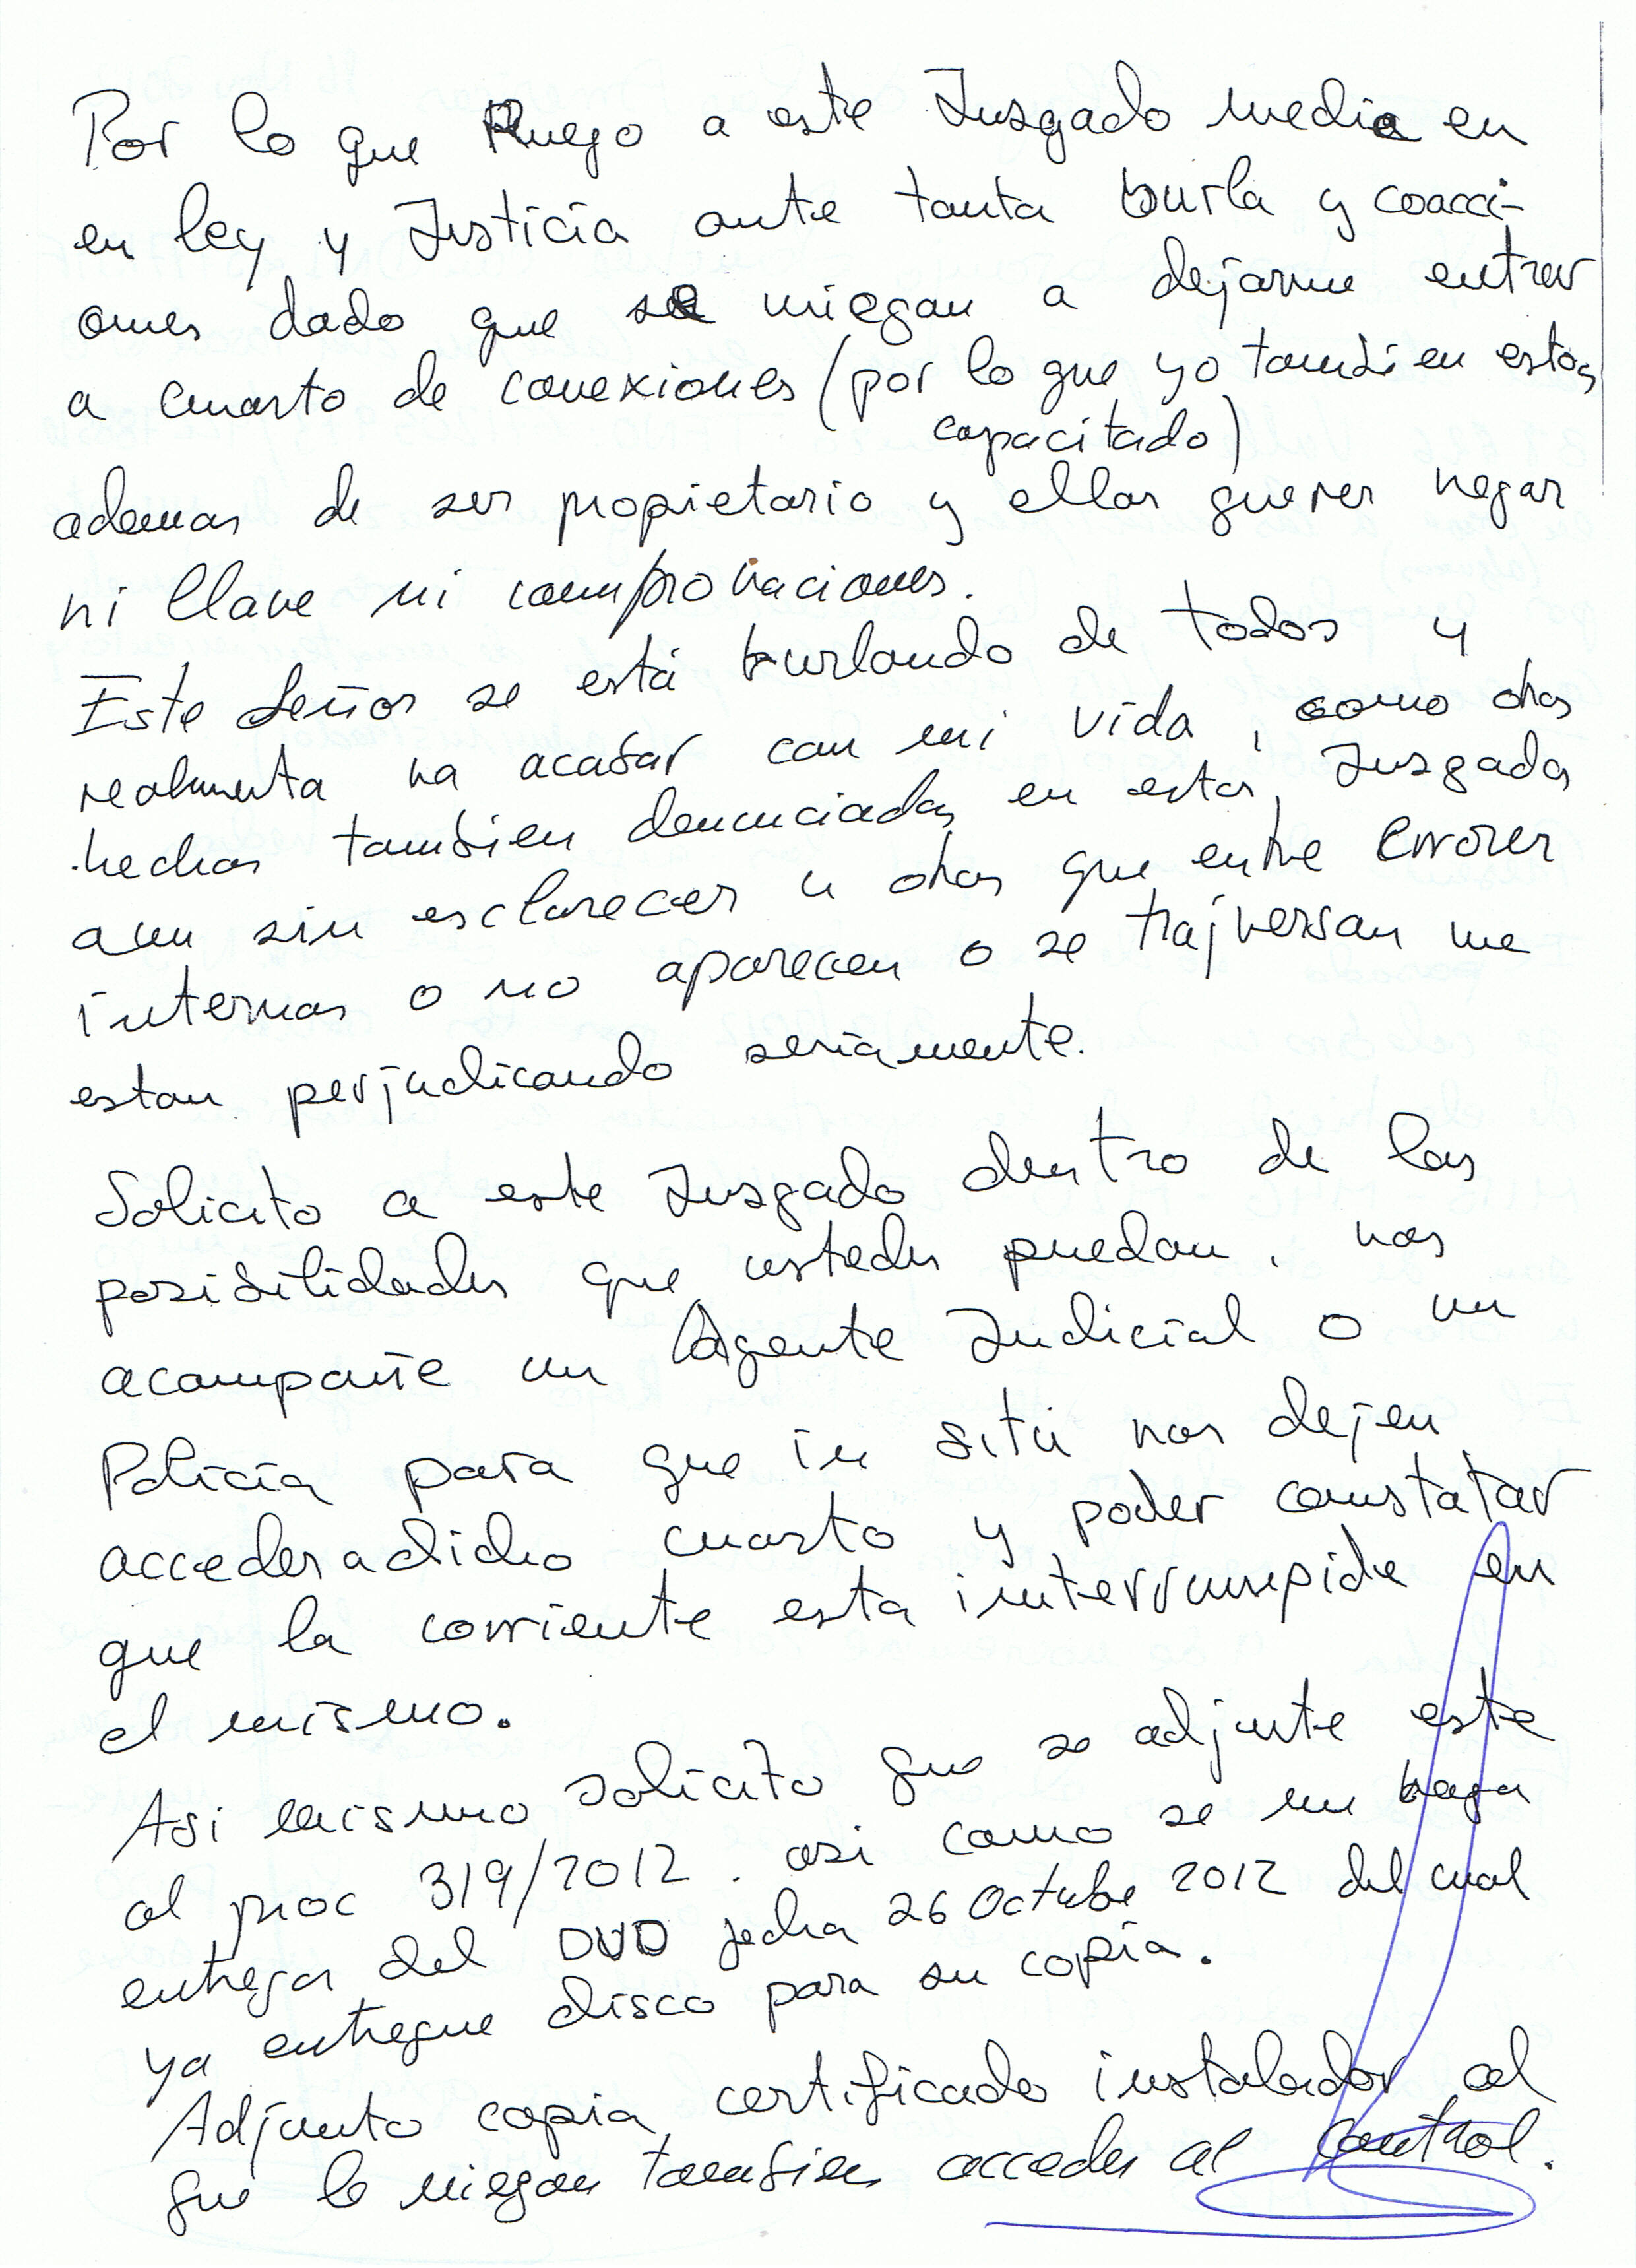 Por lo que Ruego a este Juzgado medie en
en ley y Justicia ante tanta burla y coacci-
ones dado que se niegan a dejarme entrar
a cuarto de conexiones (por lo que yo tambien estoy
capacitado)
ademas de ser propietario y ellos querer negar
ni llave ni comprovaciones.
Este Señor se está burlando de todos y
realmenta va acabar con mi vida, como otros
hechos tambien denunciados en estos Juzgados
aun sin esclarecer u otros que entre errores
internos o no aparecen o se trajversan me
estan perjudicando seriamente.
Solicito a este Juzgado dentro de las
posibilidades que ustedes puedan, nos
acompañe un Agente Judicial o un
Policia para que in sitú nos dejen
acceder a dicho cuarto y poder constatar
que la corriente esta interrumpida en
el mismo.
Asi mismo solicito que se adjunte este
al proc 319/2012. asi como se me haga
entrega del DVD fecha 26 Octubre 2012 del cual
ya entregue disco para su copia.
Adjunto copia certificado instalador al
que le niegan tambien acceder al control.